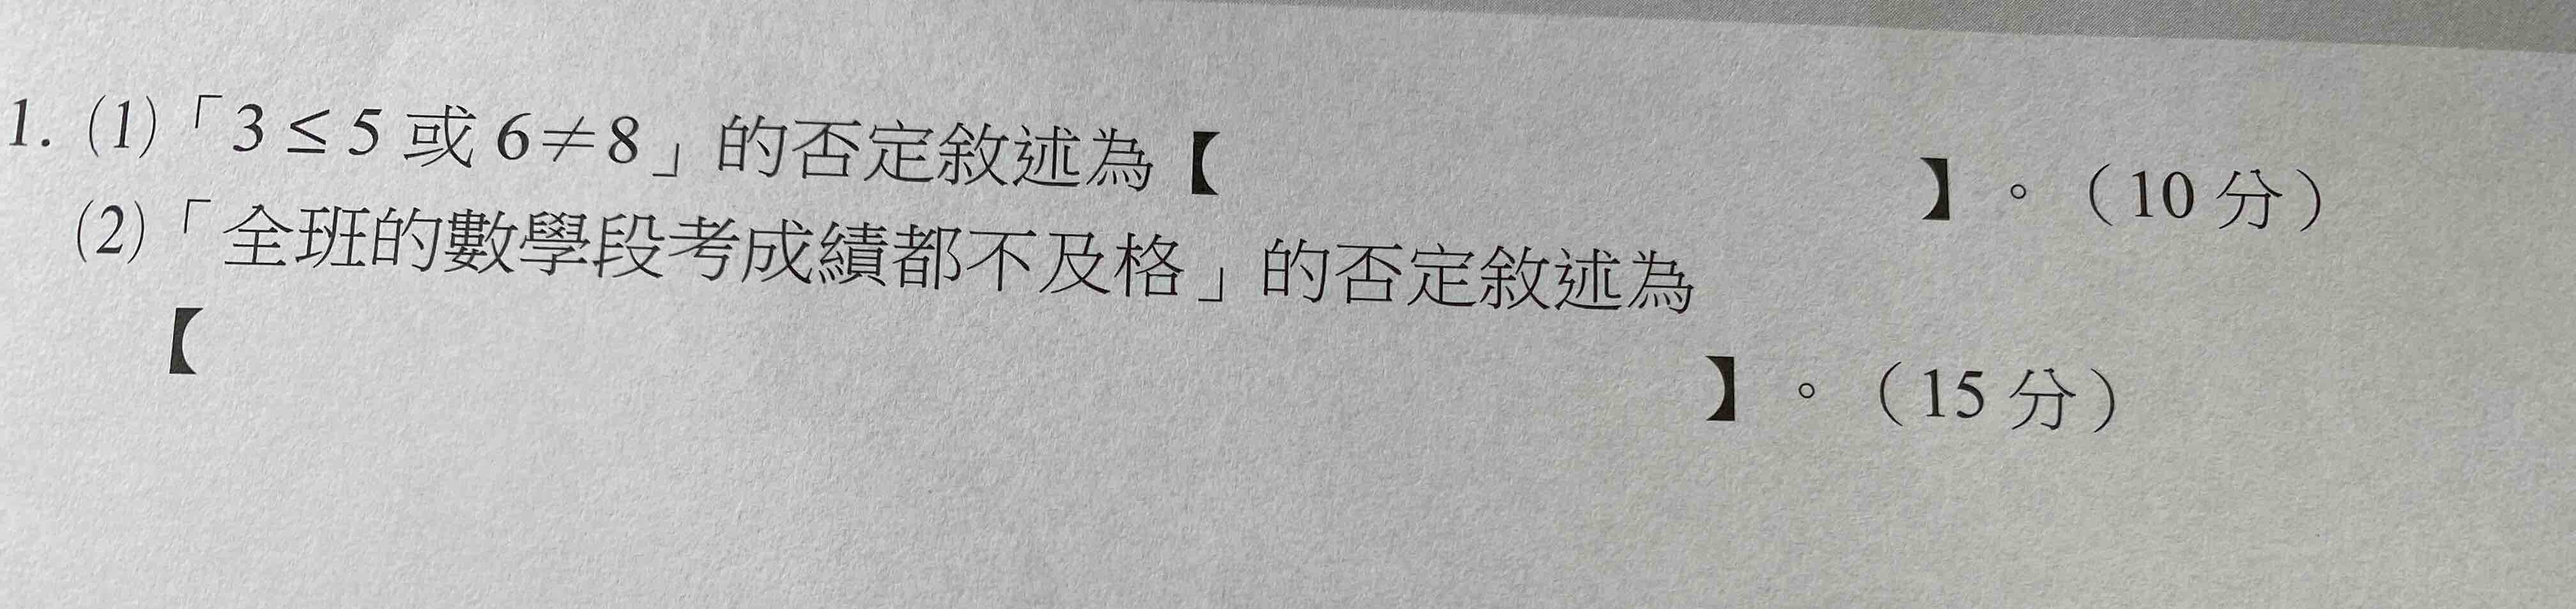 1. (1)「3 ≤ 5 或 6≠8」的否定敘述為【 】。（10 分）
(2)「全班的數學段考成績都不及格」的否定敘述為
【 】。（15 分）